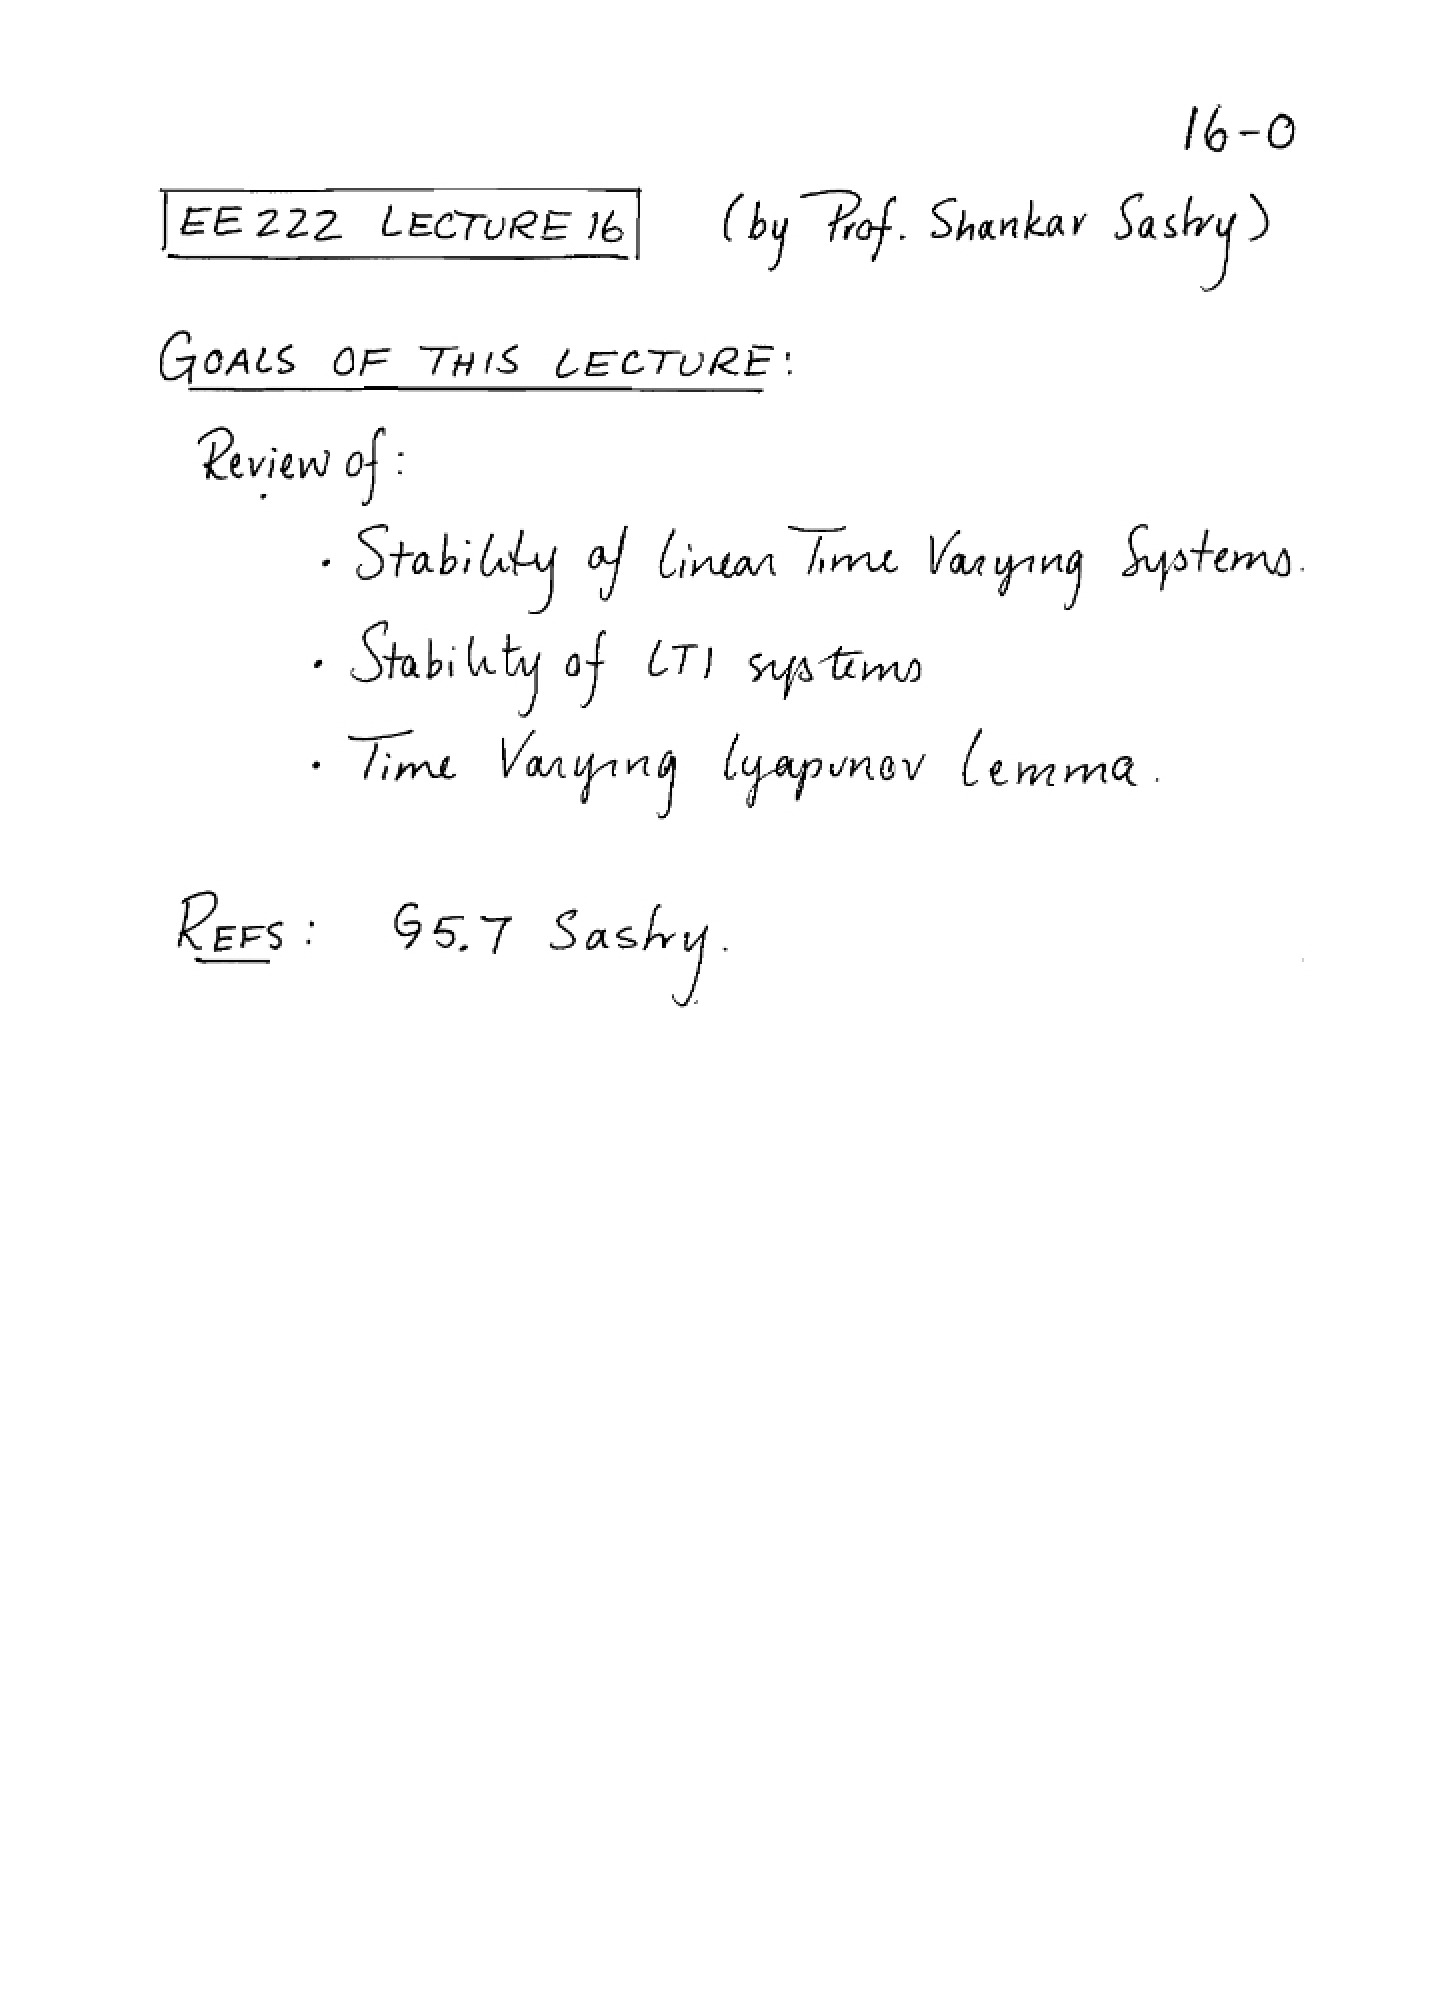 16-0
EE222 LECTURE 16 (by Prof. Shankar Sastry)
GOALS OF THIS LECTURE:
Review of:
• Stability of Linear Time Varying Systems.
• Stability of LTI systems
• Time Varying Lyapunov Lemma.
REFS: §5.7 Sastry.